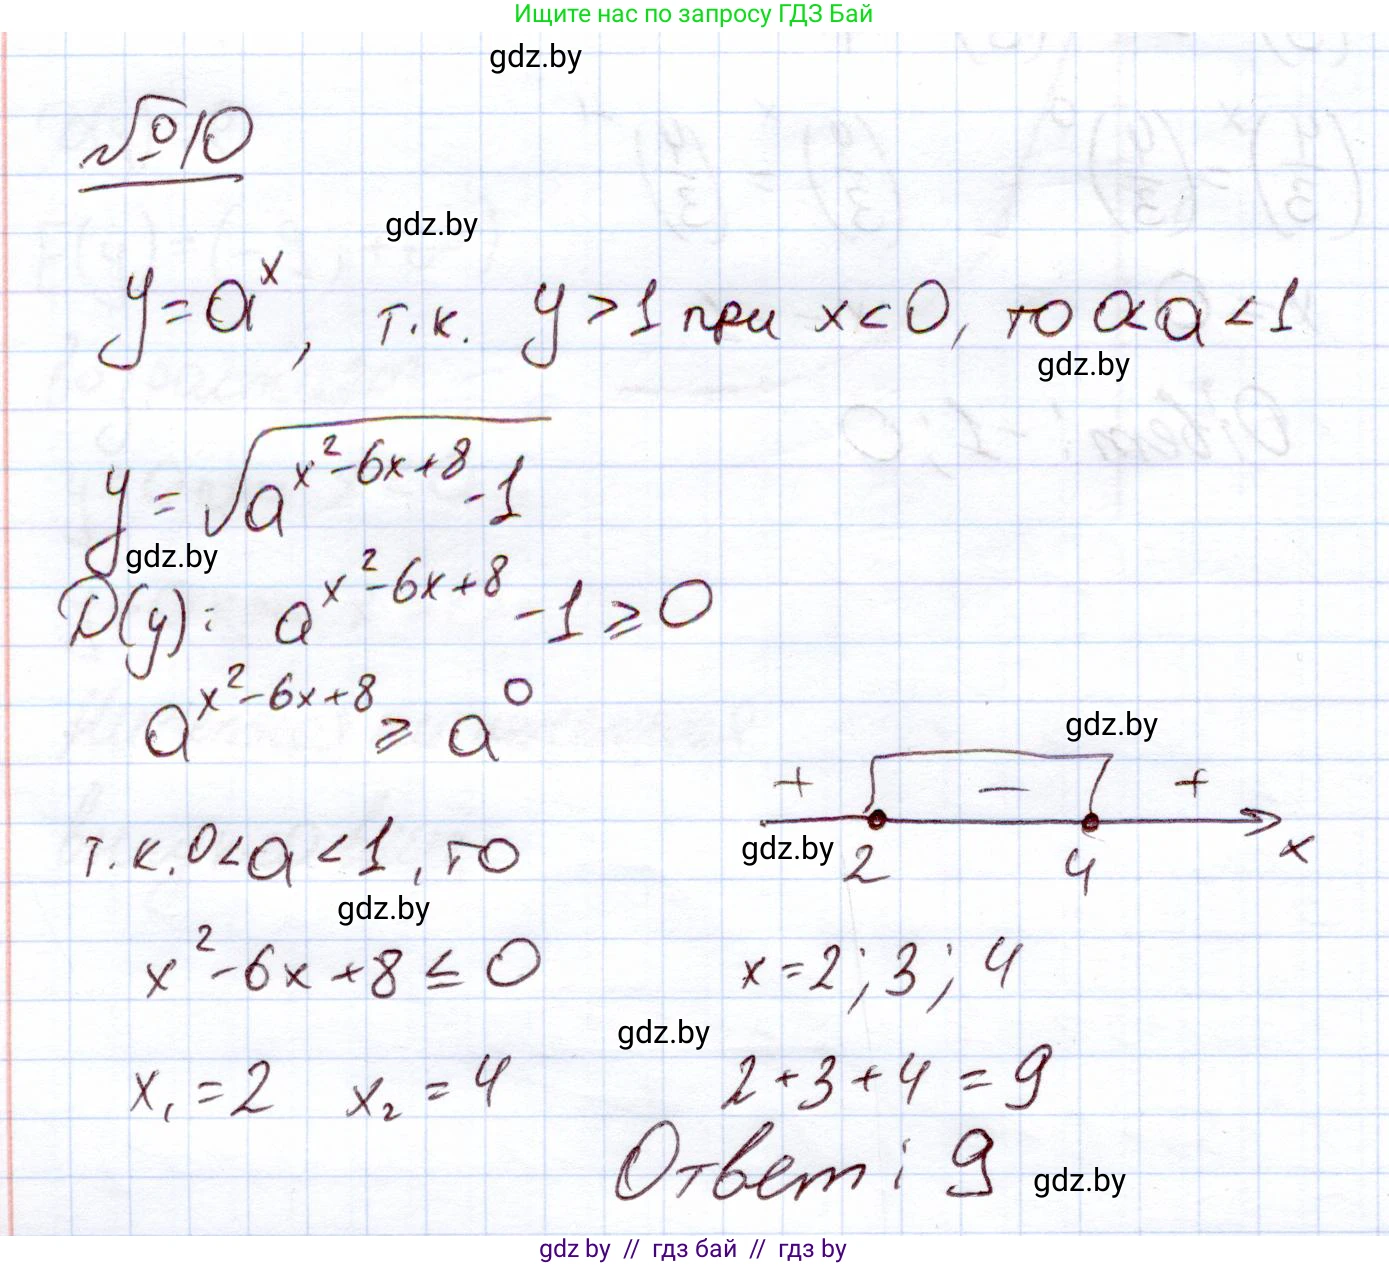 Ищите нас по запросу ГДЗ Бай
gdz.by
№10
gdz.by
y = a^x, т.к. y > 1 при x < 0, то 0 < a < 1
gdz.by
y = √(a^(x²-6x+8) - 1)
gdz.by
D(y): a^(x²-6x+8) - 1 ≥ 0
a^(x²-6x+8) ≥ a^0
gdz.by
+ − +
т.к. 0 < a < 1, то
gdz.by
2 4 x
gdz.by
x² - 6x + 8 ≤ 0
x = 2; 3; 4
gdz.by
x₁ = 2 x₂ = 4
2 + 3 + 4 = 9
Ответ: 9
gdz.by
gdz by // гдз бай // гдз by